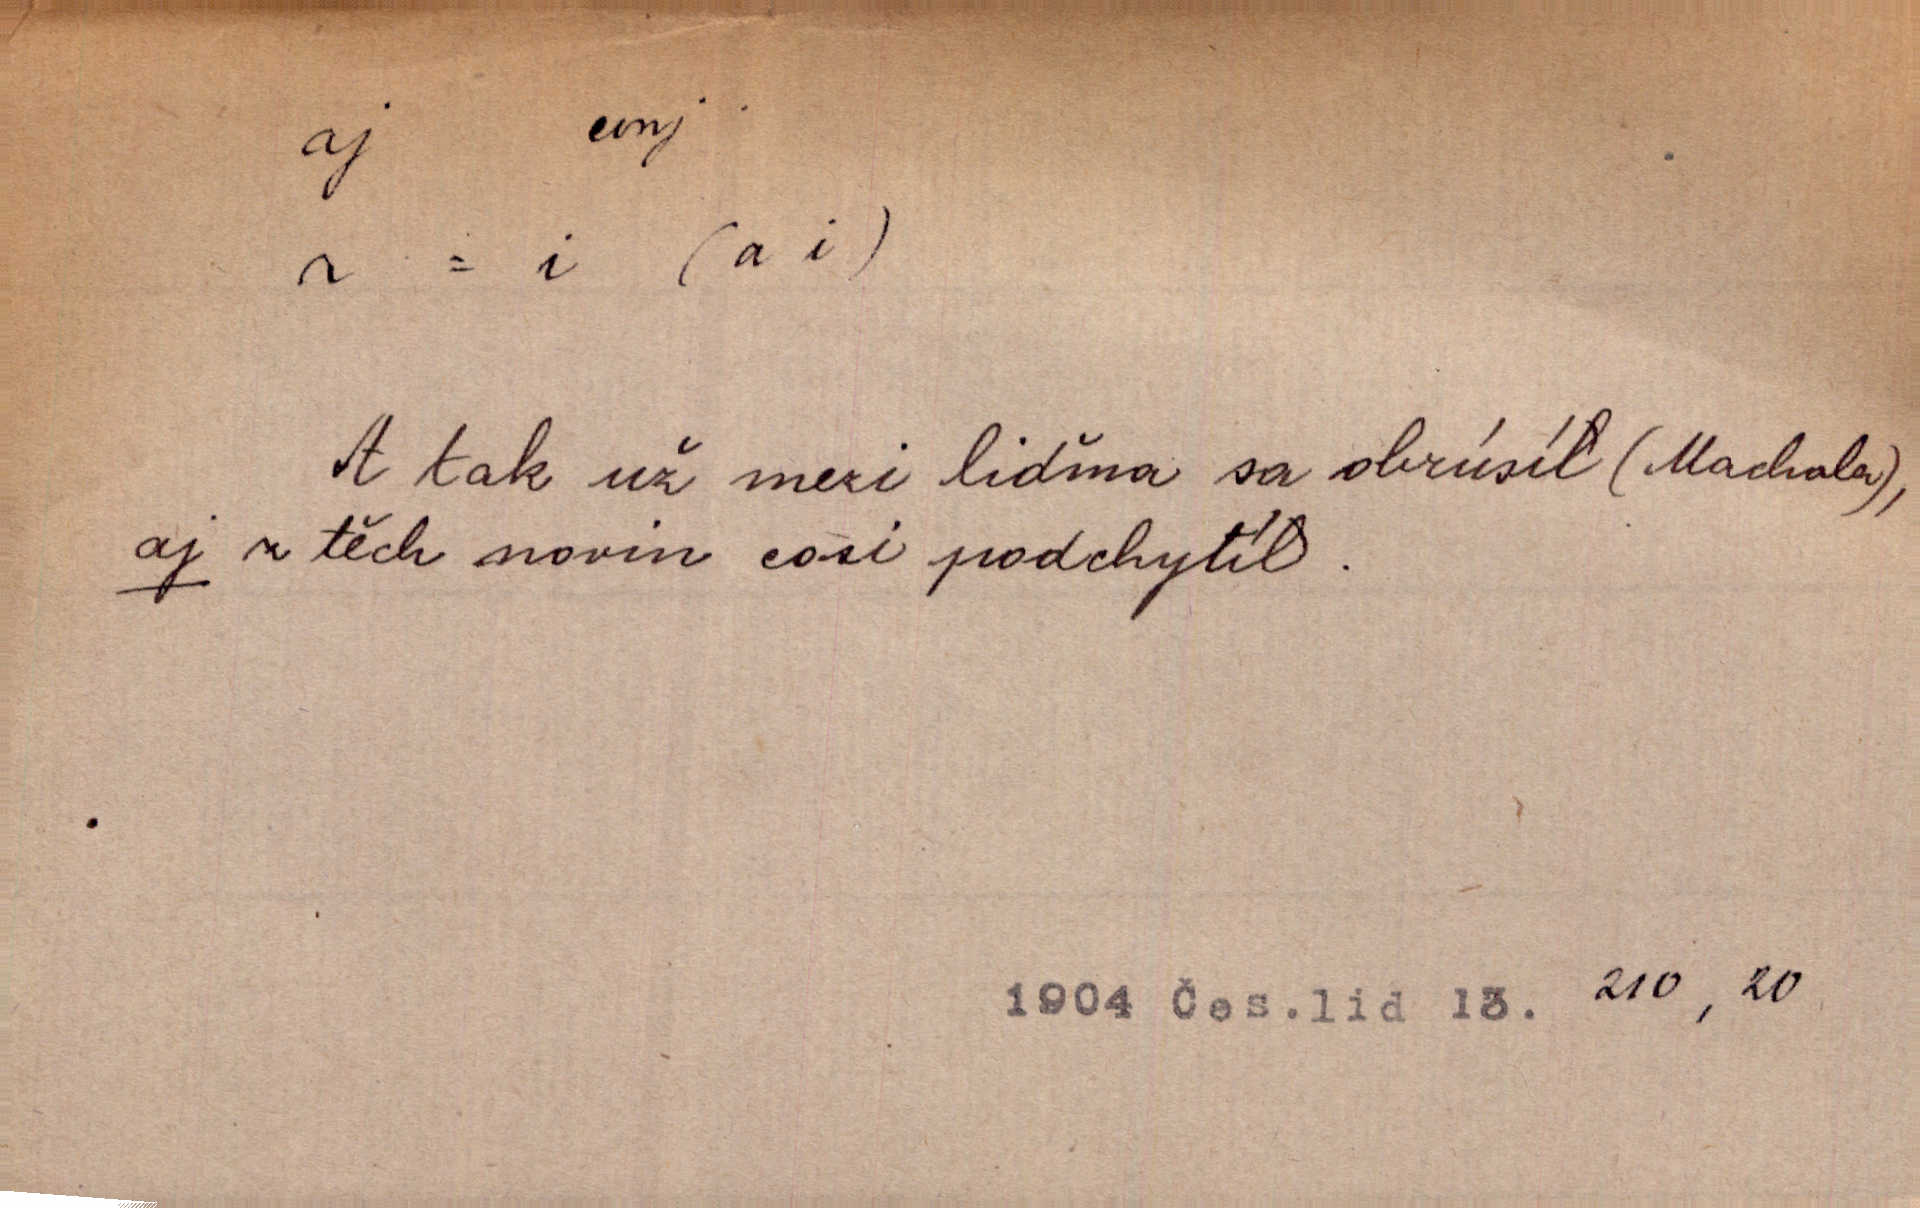 aj conj.
z = i (a i)
A tak už mezi lidďma sa obrúsíł (Machala),
aj z těch novin cosi podchytíł.
1904 Čes.lid 13. 210, 20